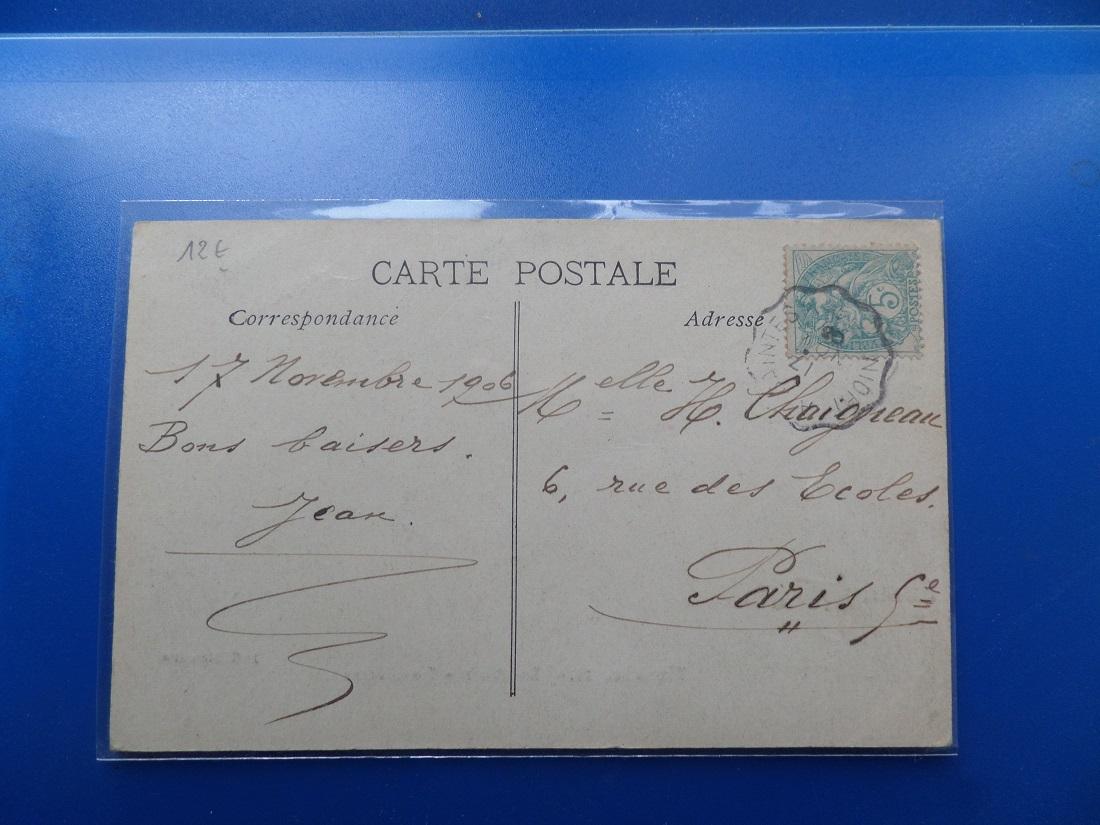 12€
CARTE POSTALE
Correspondance
Adresse
5c
POSTES
NIORT
17 Novembre 1906
Bons baisers.
Jean.
Melle H. Chaigneau
6, rue des Ecoles.
Paris 5e